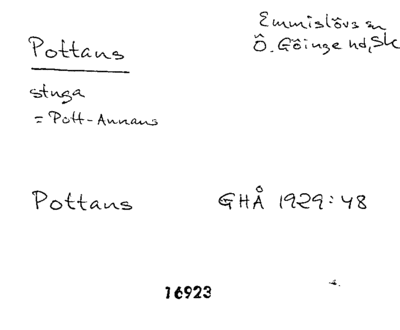 Pottans
Emmislövs sn
Ö. Göinge hd, Sk
stuga
= Pott-Annans
Pottans GHÅ 1929:48
16923